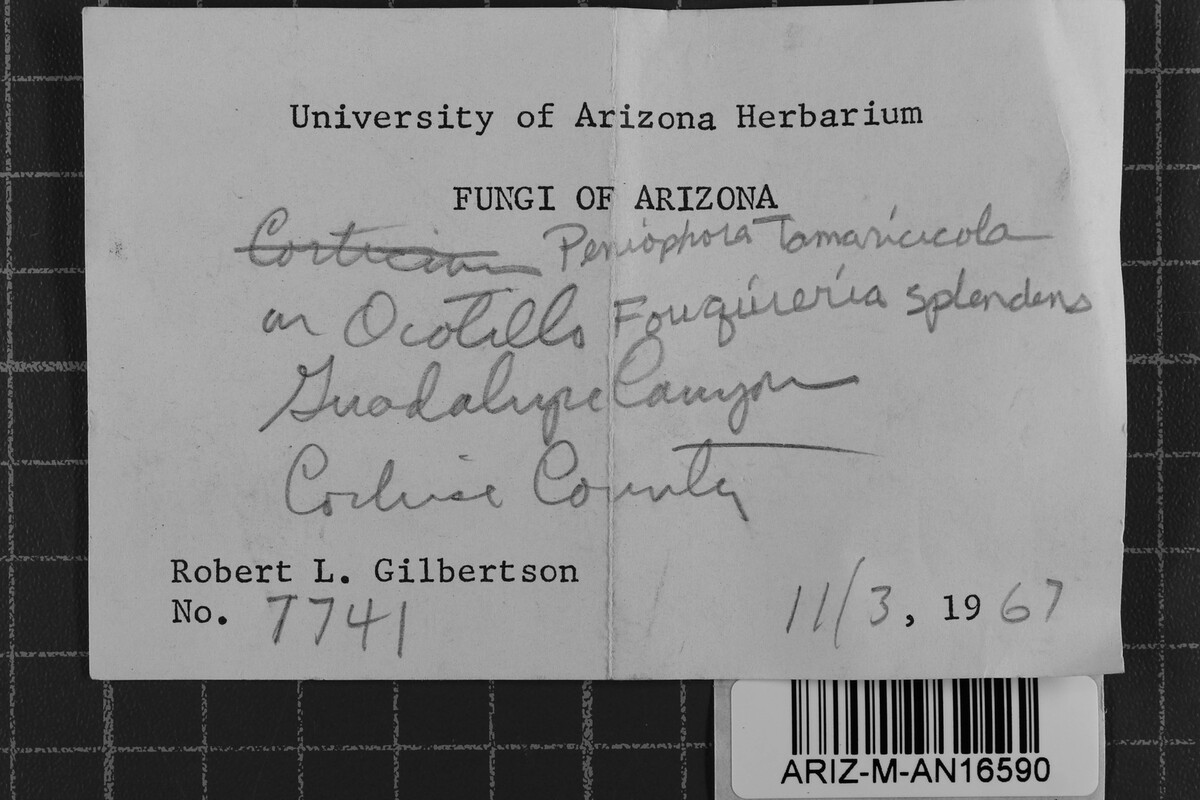 University of Arizona Herbarium
FUNGI OF ARIZONA
Corticium Peniophora Tamaricicola
on Ocotillo Fouquieria splendens
Guadalupe Canyon
Cochise County
Robert L. Gilbertson
No. 7741 11/3, 1967
ARIZ-M-AN16590